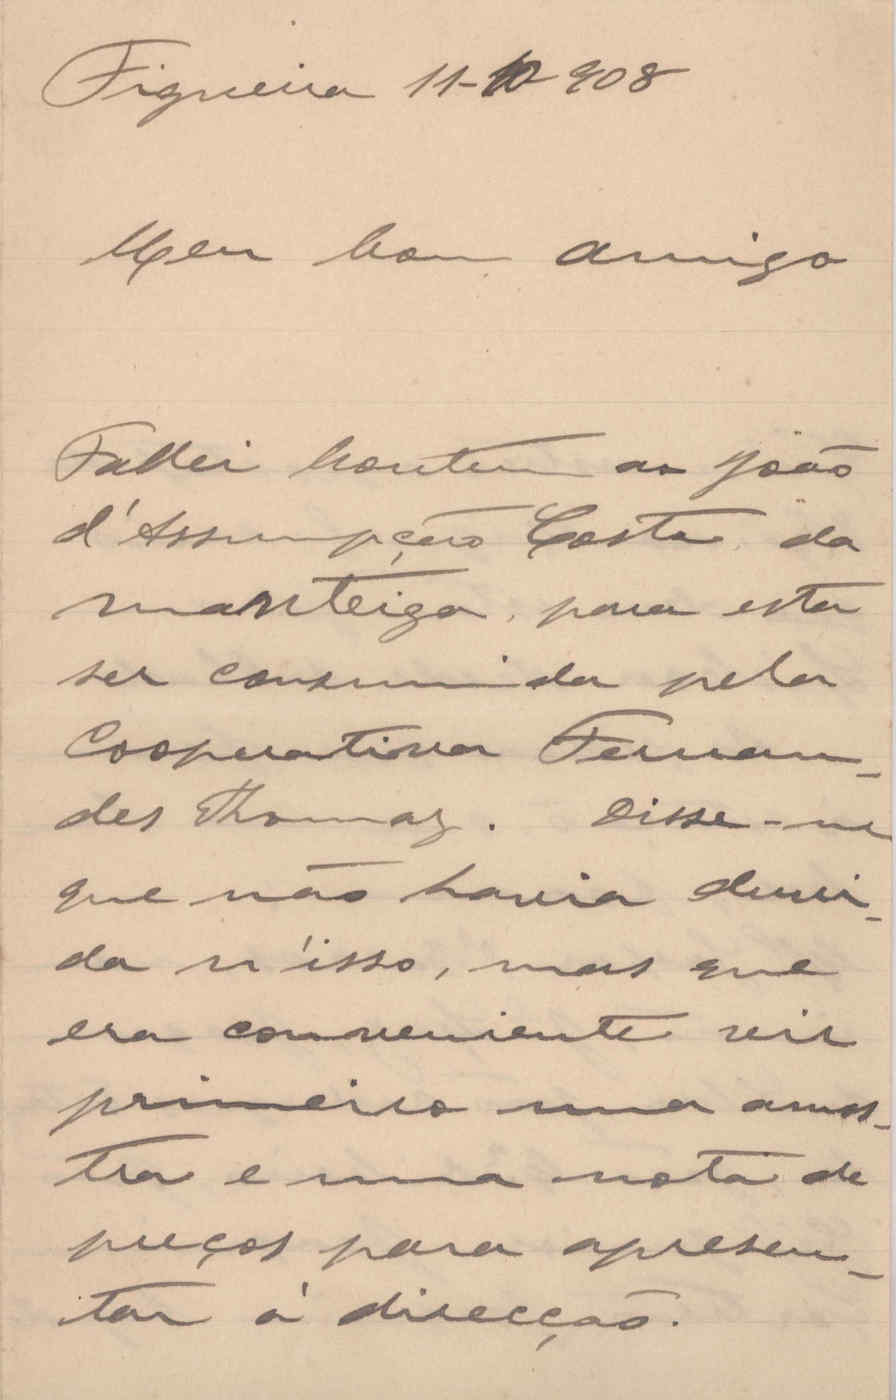 Figueira 11-10-908
Meu bom amigo
Fallei hontem ao João
d'Assumpção Costa da
manteiga, para esta
ser consumida pela
Cooperativa Fernan-
des Thomaz. Disse-me
que não havia duvi-
da n'isso, mas que
era conveniente vir
primeiro uma amos-
tra e uma nota de
preços para apresen-
tar á direcção.